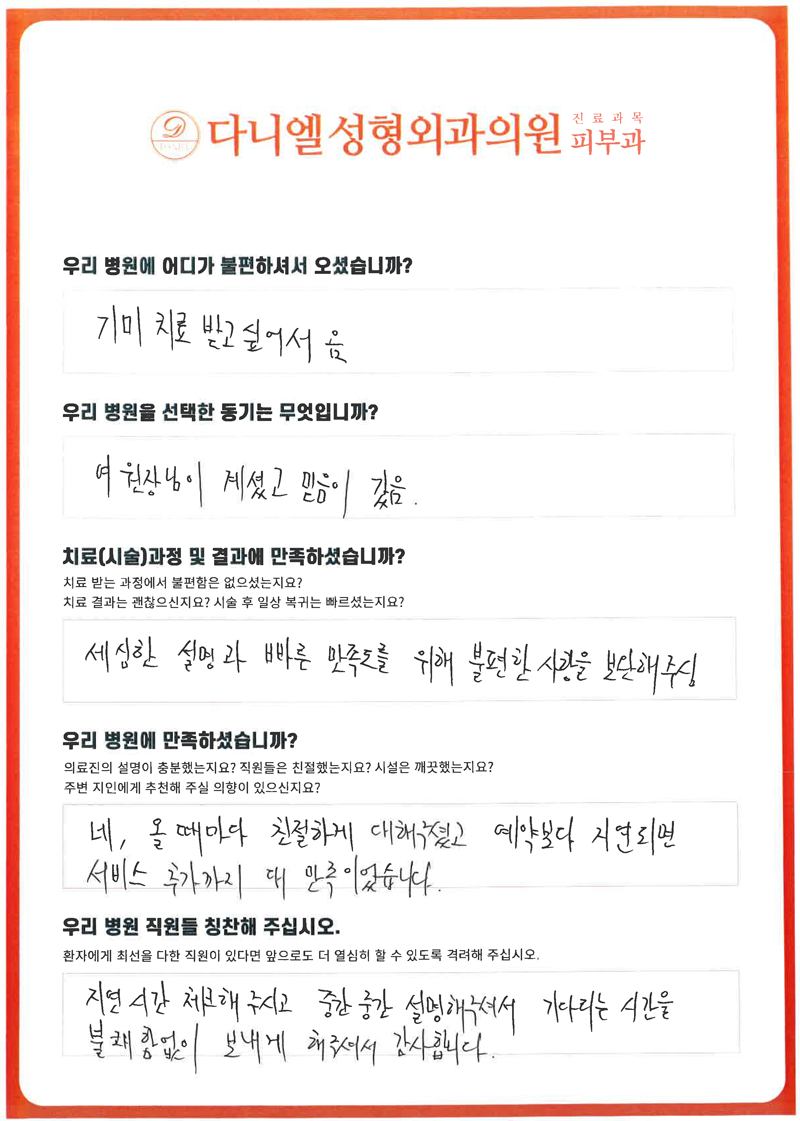 다니엘성형외과의원
진료과목
피부과
우리 병원에 어디가 불편하셔서 오셨습니까?
기미 치료 받고 싶어서 옴
우리 병원을 선택한 동기는 무엇입니까?
여 원장님이 계셨고 믿음이 갔음.
치료(시술)과정 및 결과에 만족하셨습니까?
치료 받는 과정에서 불편함은 없으셨는지요?
치료 결과는 괜찮으신지요? 시술 후 일상 복귀는 빠르셨는지요?
세심한 설명과 빠른 만족도를 위해 불편한 사항을 보단해주심
우리 병원에 만족하셨습니까?
의료진의 설명이 충분했는지요? 직원들은 친절했는지요? 시설은 깨끗했는지요?
주변 지인에게 추천해 주실 의향이 있으신지요?
네, 올 때마다 친절하게 대해주셨고 예약보다 지연되면
서비스 추가까지 대 만족이었습니다.
우리 병원 직원들 칭찬해 주십시오.
환자에게 최선을 다한 직원이 있다면 앞으로도 더 열심히 할 수 있도록 격려해 주십시오.
지연 시간 체크해 주시고 중간중간 설명해주셔서 기다리는 시간을
불쾌함없이 보내게 해주셔서 감사합니다.